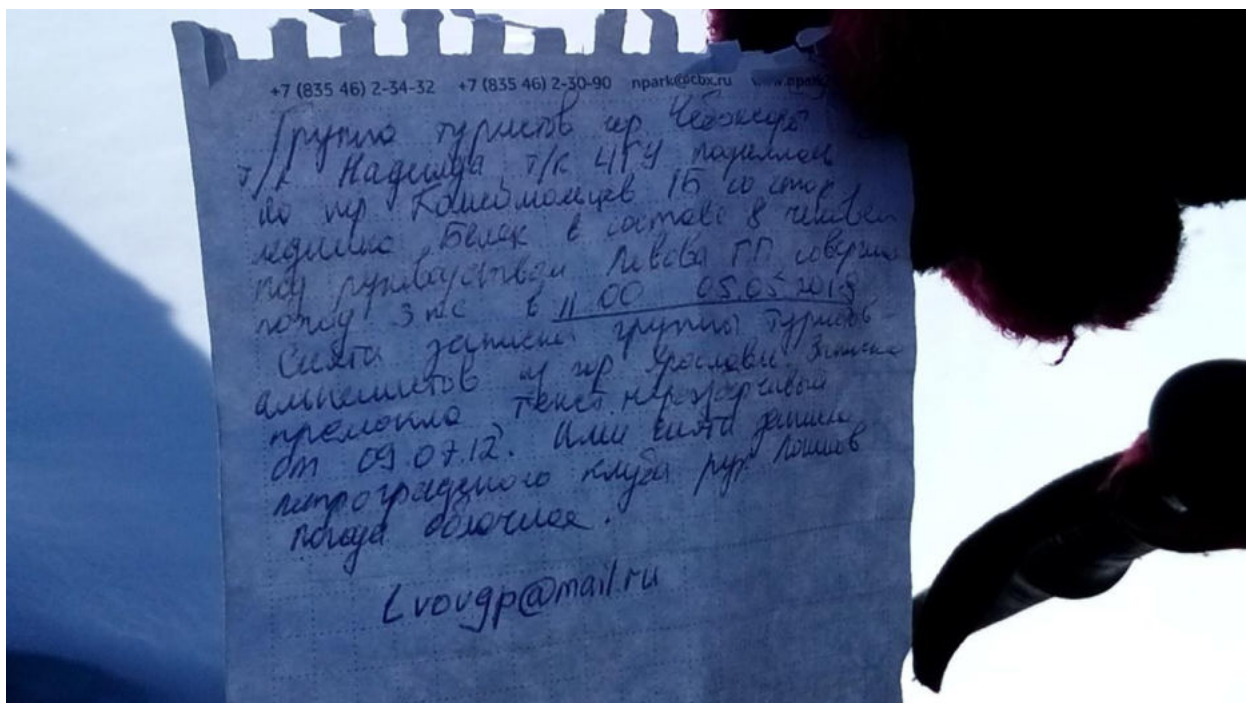 +7 (835 46) 2-34-32 +7 (835 46) 2-30-90 npark@cbx.ru
Группа туристов
т/к Надежда, т/к ЧГУ поднялась
на пер Комсомольцев 1Б со стор
ледника Белек в составе 8 человек
под руководством Львова ГП соверш
поход 3 кс в 11 00 05.05 2018
Снята записка группы туристов-
альпинистов из гор Ярославль Записка
промокла текст неразборчивый
от 09.07.12? Или снята записка
петроградского клуба рук
погода облачная.
Lvovgp@mail.ru